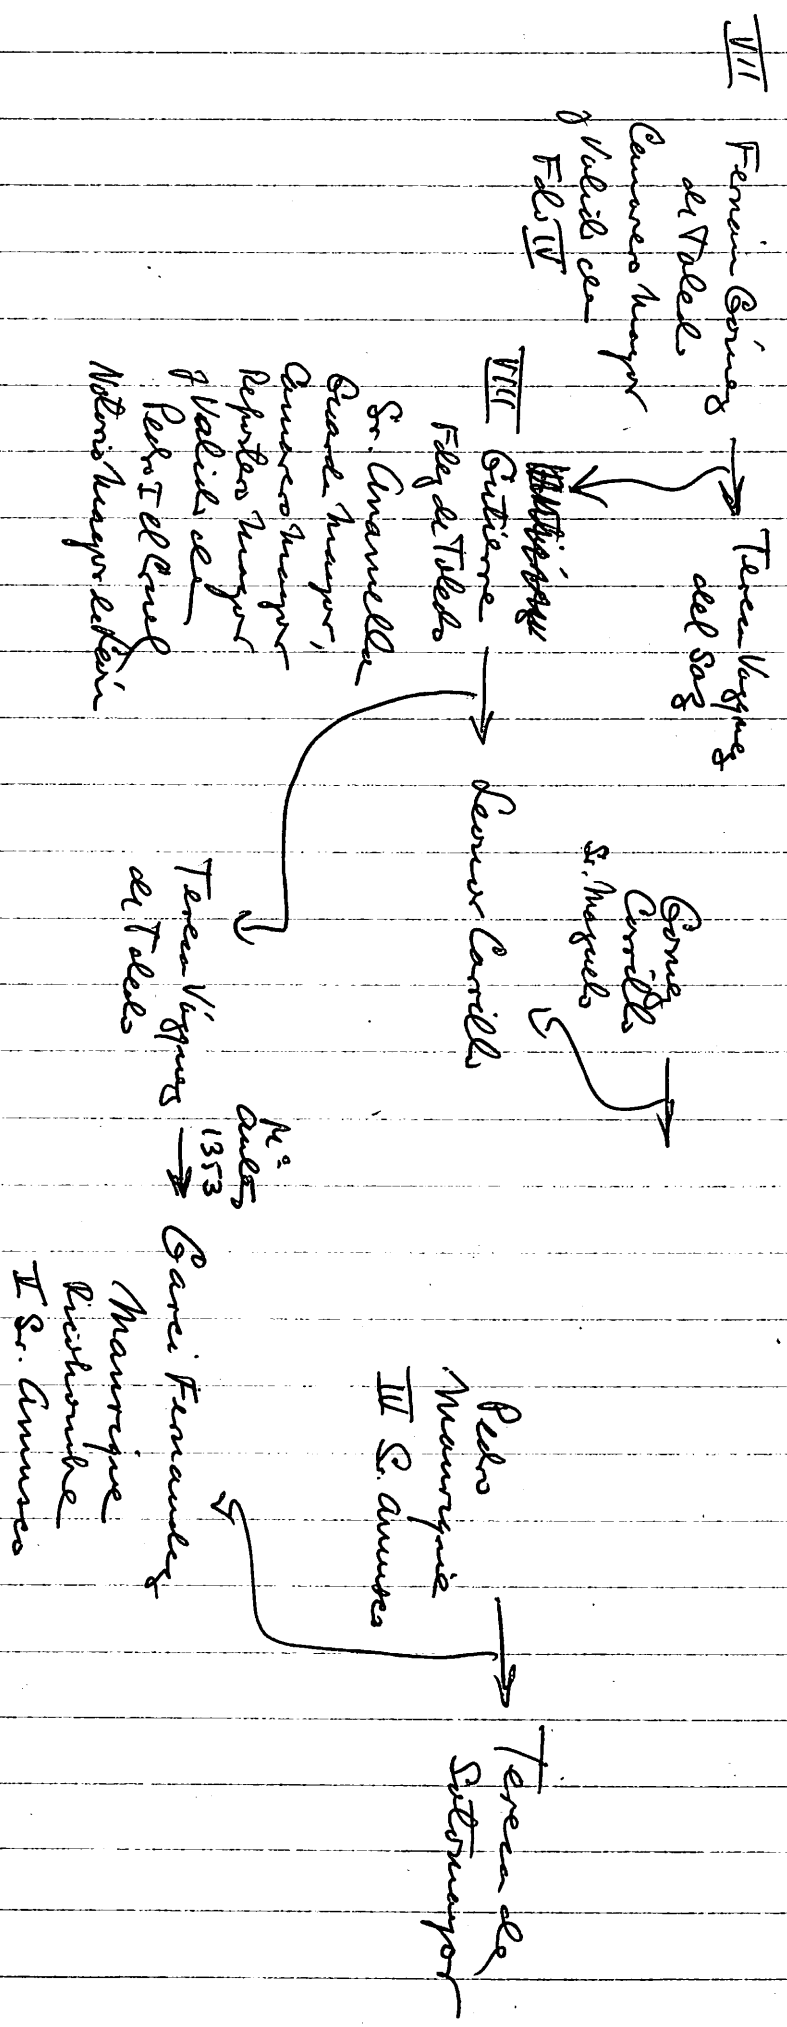 VII
Fernán Gómez
de Toledo
Camarero Mayor
y Valido de
Fdo IV
Teresa Vázquez
del Saz
VIII
Gutierre
Fdez de Toledo
Sr. Anamella
Guarda Mayor,
Camarero Mayor
Repostero Mayor
y Valido de
Pedro I el Cruel
Notorio Mayor de
Leonor Carrillo
Gómez
Carrillo
Sr. Mazuelo
Teresa Vázquez
de Toledo
Mº
antes
1353
Garci Fernandez
Manrique
Ricohombre
V Sr. Amusco
Pedro
Manrique
III Sr. Amusco
Teresa de
Sotomayor